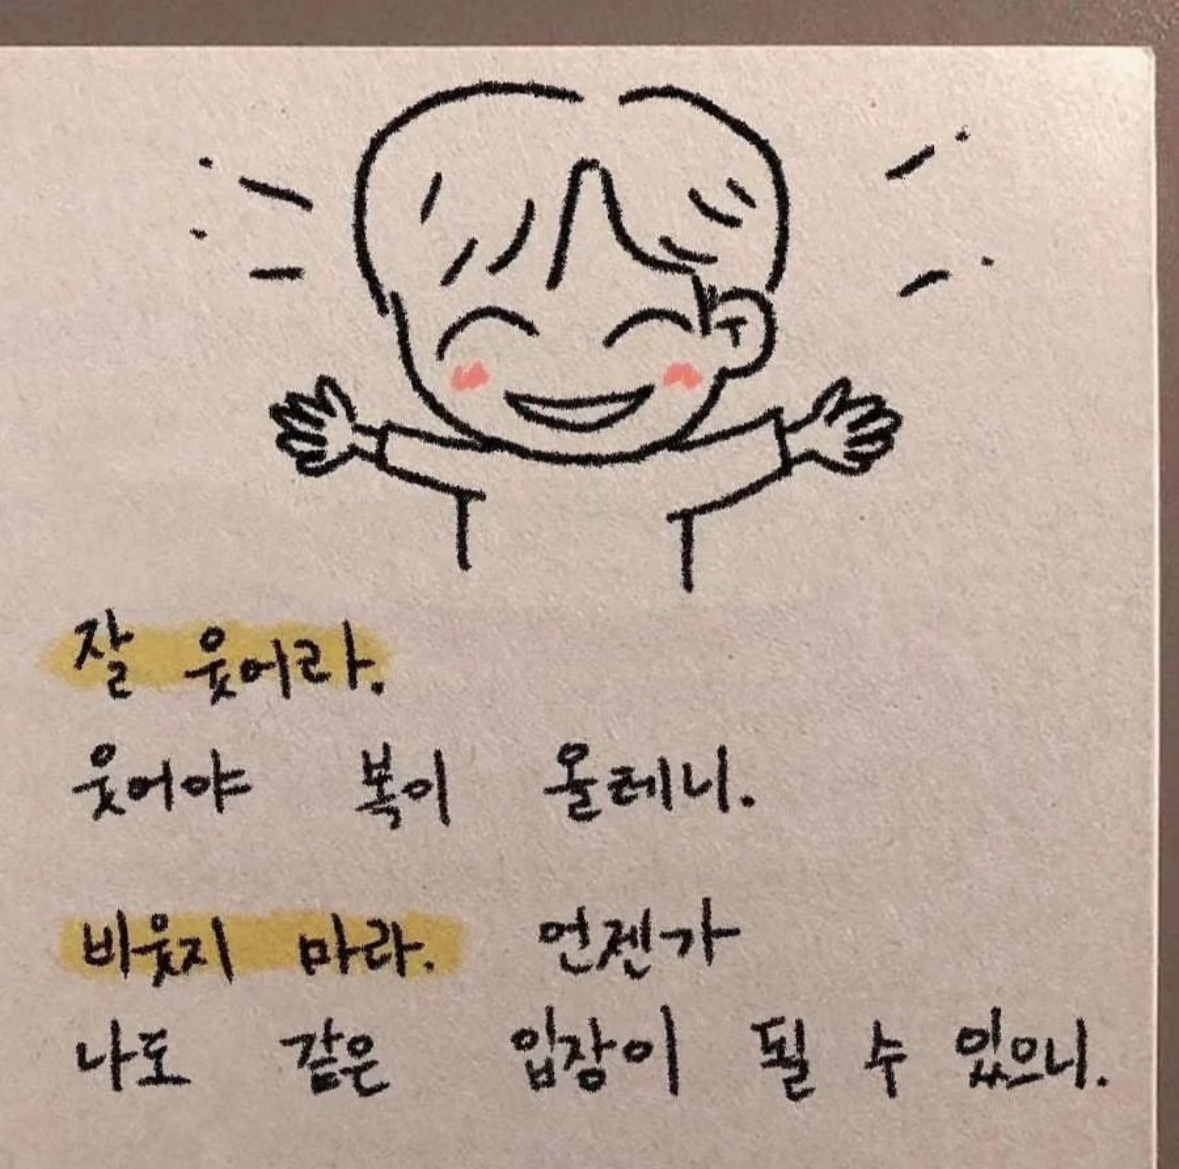 잘 웃어라.
웃어야 복이 올테니.
비웃지 마라. 언젠가
나도 같은 입장이 될 수 있으니.